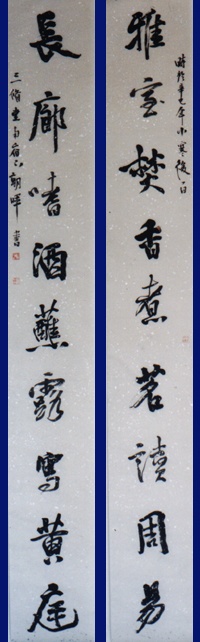 雅室焚香煮茗讀周易
時於辛巳年小寒後一日
長廊嗜酒蘸露寫黃庭
朝暉書